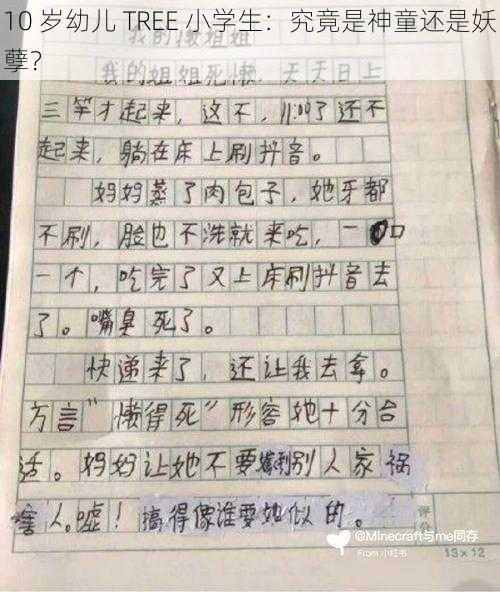 10 岁幼儿 TREE 小学生：究竟是神童还是妖
孽？
我的懒姐姐
我的姐姐死懒，天天日上
三竿才起来，这不，11:09了还不
起来，躺在床上刷抖音。
妈妈蒸了肉包子，她牙都
不刷，脸也不洗就来吃，一口
一个，吃完了又上床刷抖音去
了。嘴臭死了。
快递来了，还让我去拿。
方言“懒得死”形容她十分合
适。妈妈让她不要嫁到别人家祸
害人。嘘！搞得像谁要她似的。
评分
@Minecraft与me同存
From 小红书
13×12